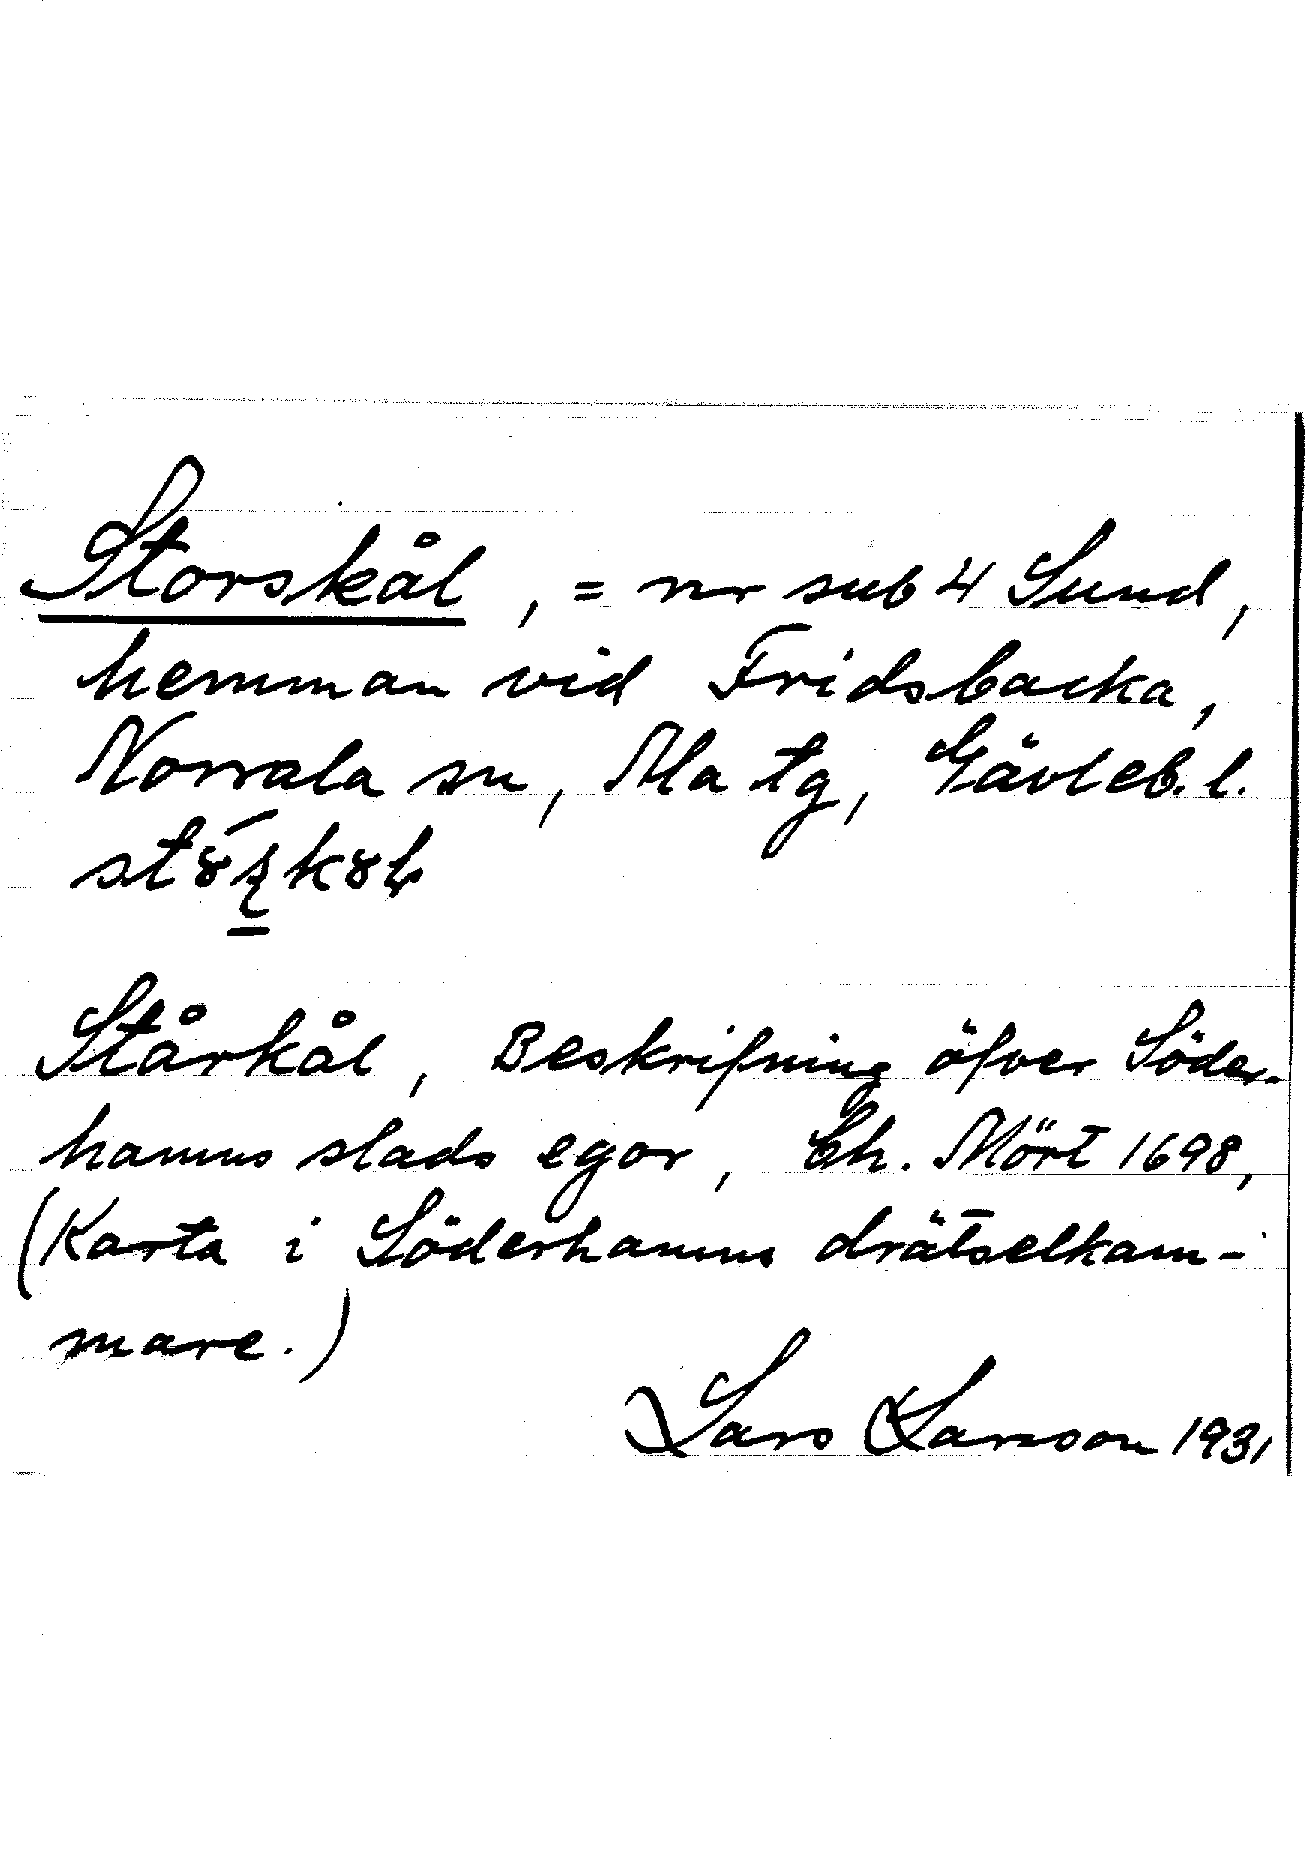 Storskål, = nr sub 4 Sund,
hemman vid Fridsbacka,
Norrala sn, Ala tg, Gävleb. l.
Stårkål, Beskrifning öfver Söder-
hamns stads egor, Ch. Mört 1698,
(Karta i Söderhamns drätselkam-
mare.)
Lars Larsson 1931